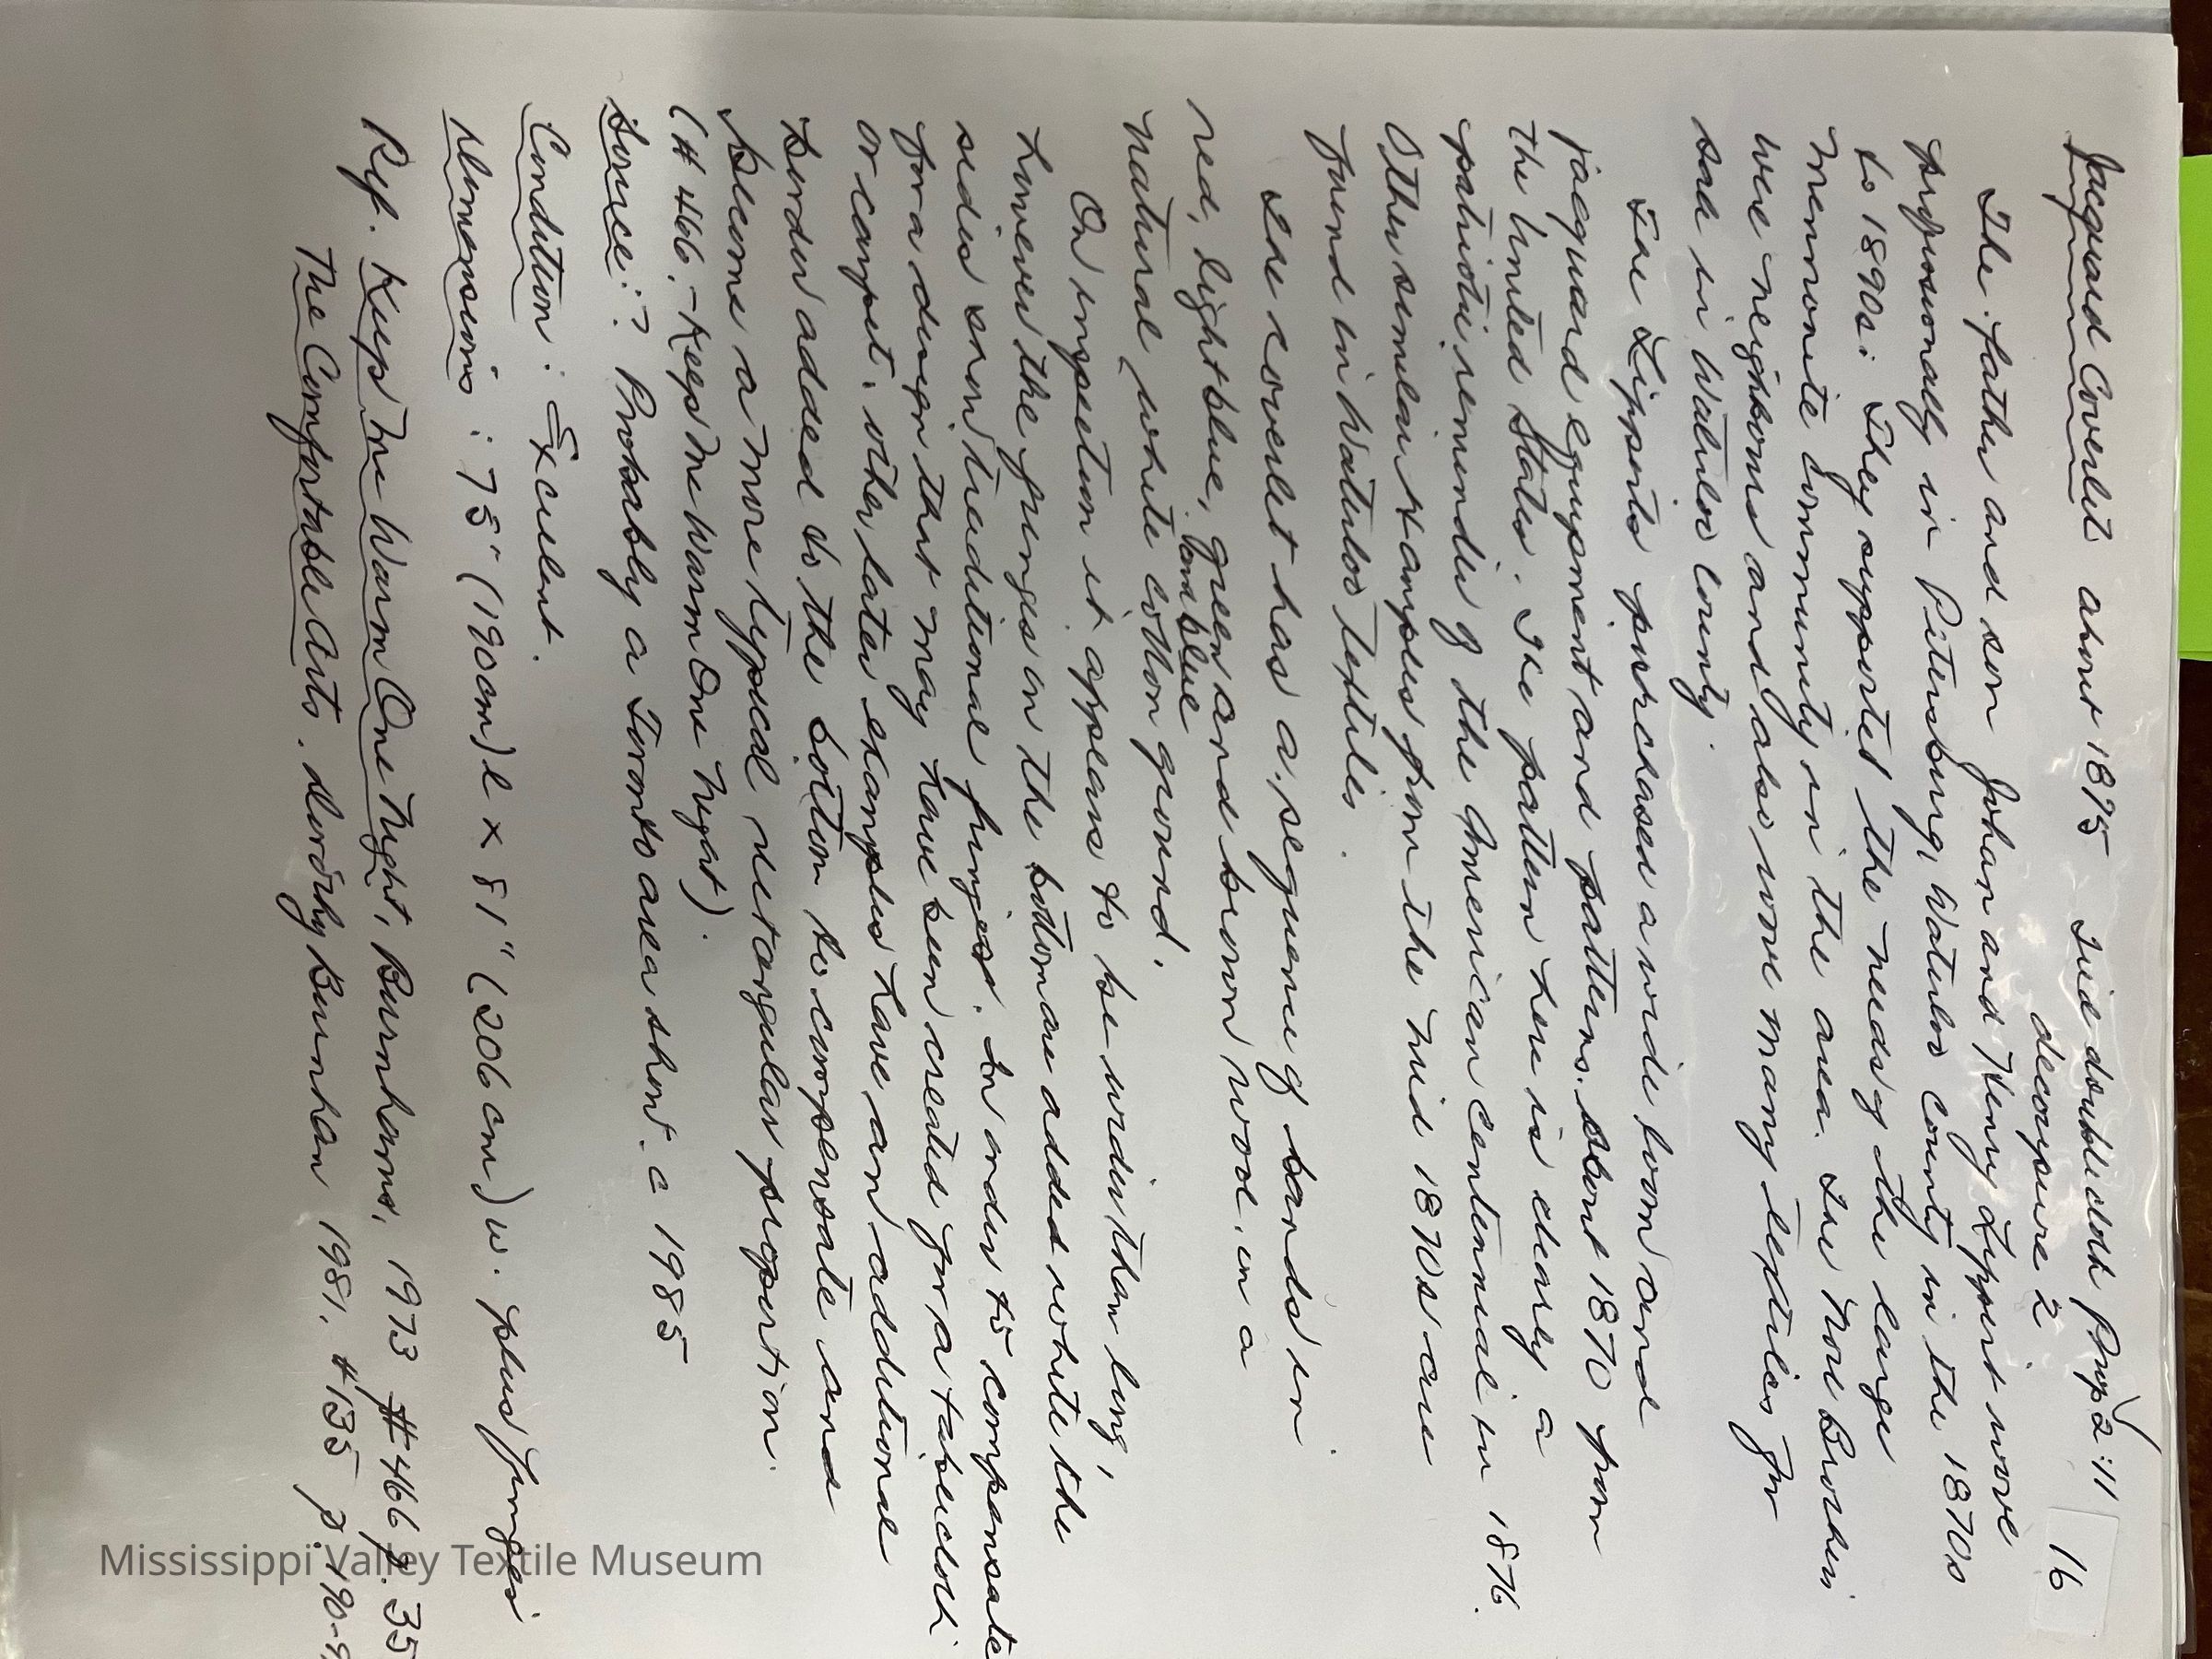 Jacquard Coverlet about 1875 Tied doublecloth Prop 2:11
decorpure 2
16
The father and son Johan and Henry Lippert wove
professionally in Petersburg, Waterloo County in the 1870s
to 1890s. They supported the needs of the large
Mennonite Community in the area. The Noll Brothers
were neighbours and also wove many textiles for
sale in Waterloo County.
The Lipperts purchased a wide loom and
jacquard equipment and patterns about 1870 from
the United States. The pattern here is clearly a
patriotic reminder of the American Centennial in 1876.
Other similar examples from the mid 1870s are
found in Waterloo textiles.
The coverlet has a sequence of bands in
red, light blue, green and brown wool, in a
dark blue
natural white cotton ground.
On inspection it appears to be wider than long,
however the fringes on the bottom are added while the
sides show traditional fringes. In order to compensate
for a design that may have been created for a tablecloth
or carpet, other later examples have an additional
border added to the bottom to compensate and
become a more typical rectangular proportion.
(#466.-Keep Me Warm One Night).
Source:? Probably a Toronto area show. c 1985
Condition: Excellent.
Dimensions: 75" (190cm) l x 81" (206cm) w. plus fringes
Ref. Keep Me Warm One Night, Burnhams, 1973 #466 p. 35
The Comfortable Arts. Dorothy Burnham 1981, #135 p. 190-9
Mississippi Valley Textile Museum